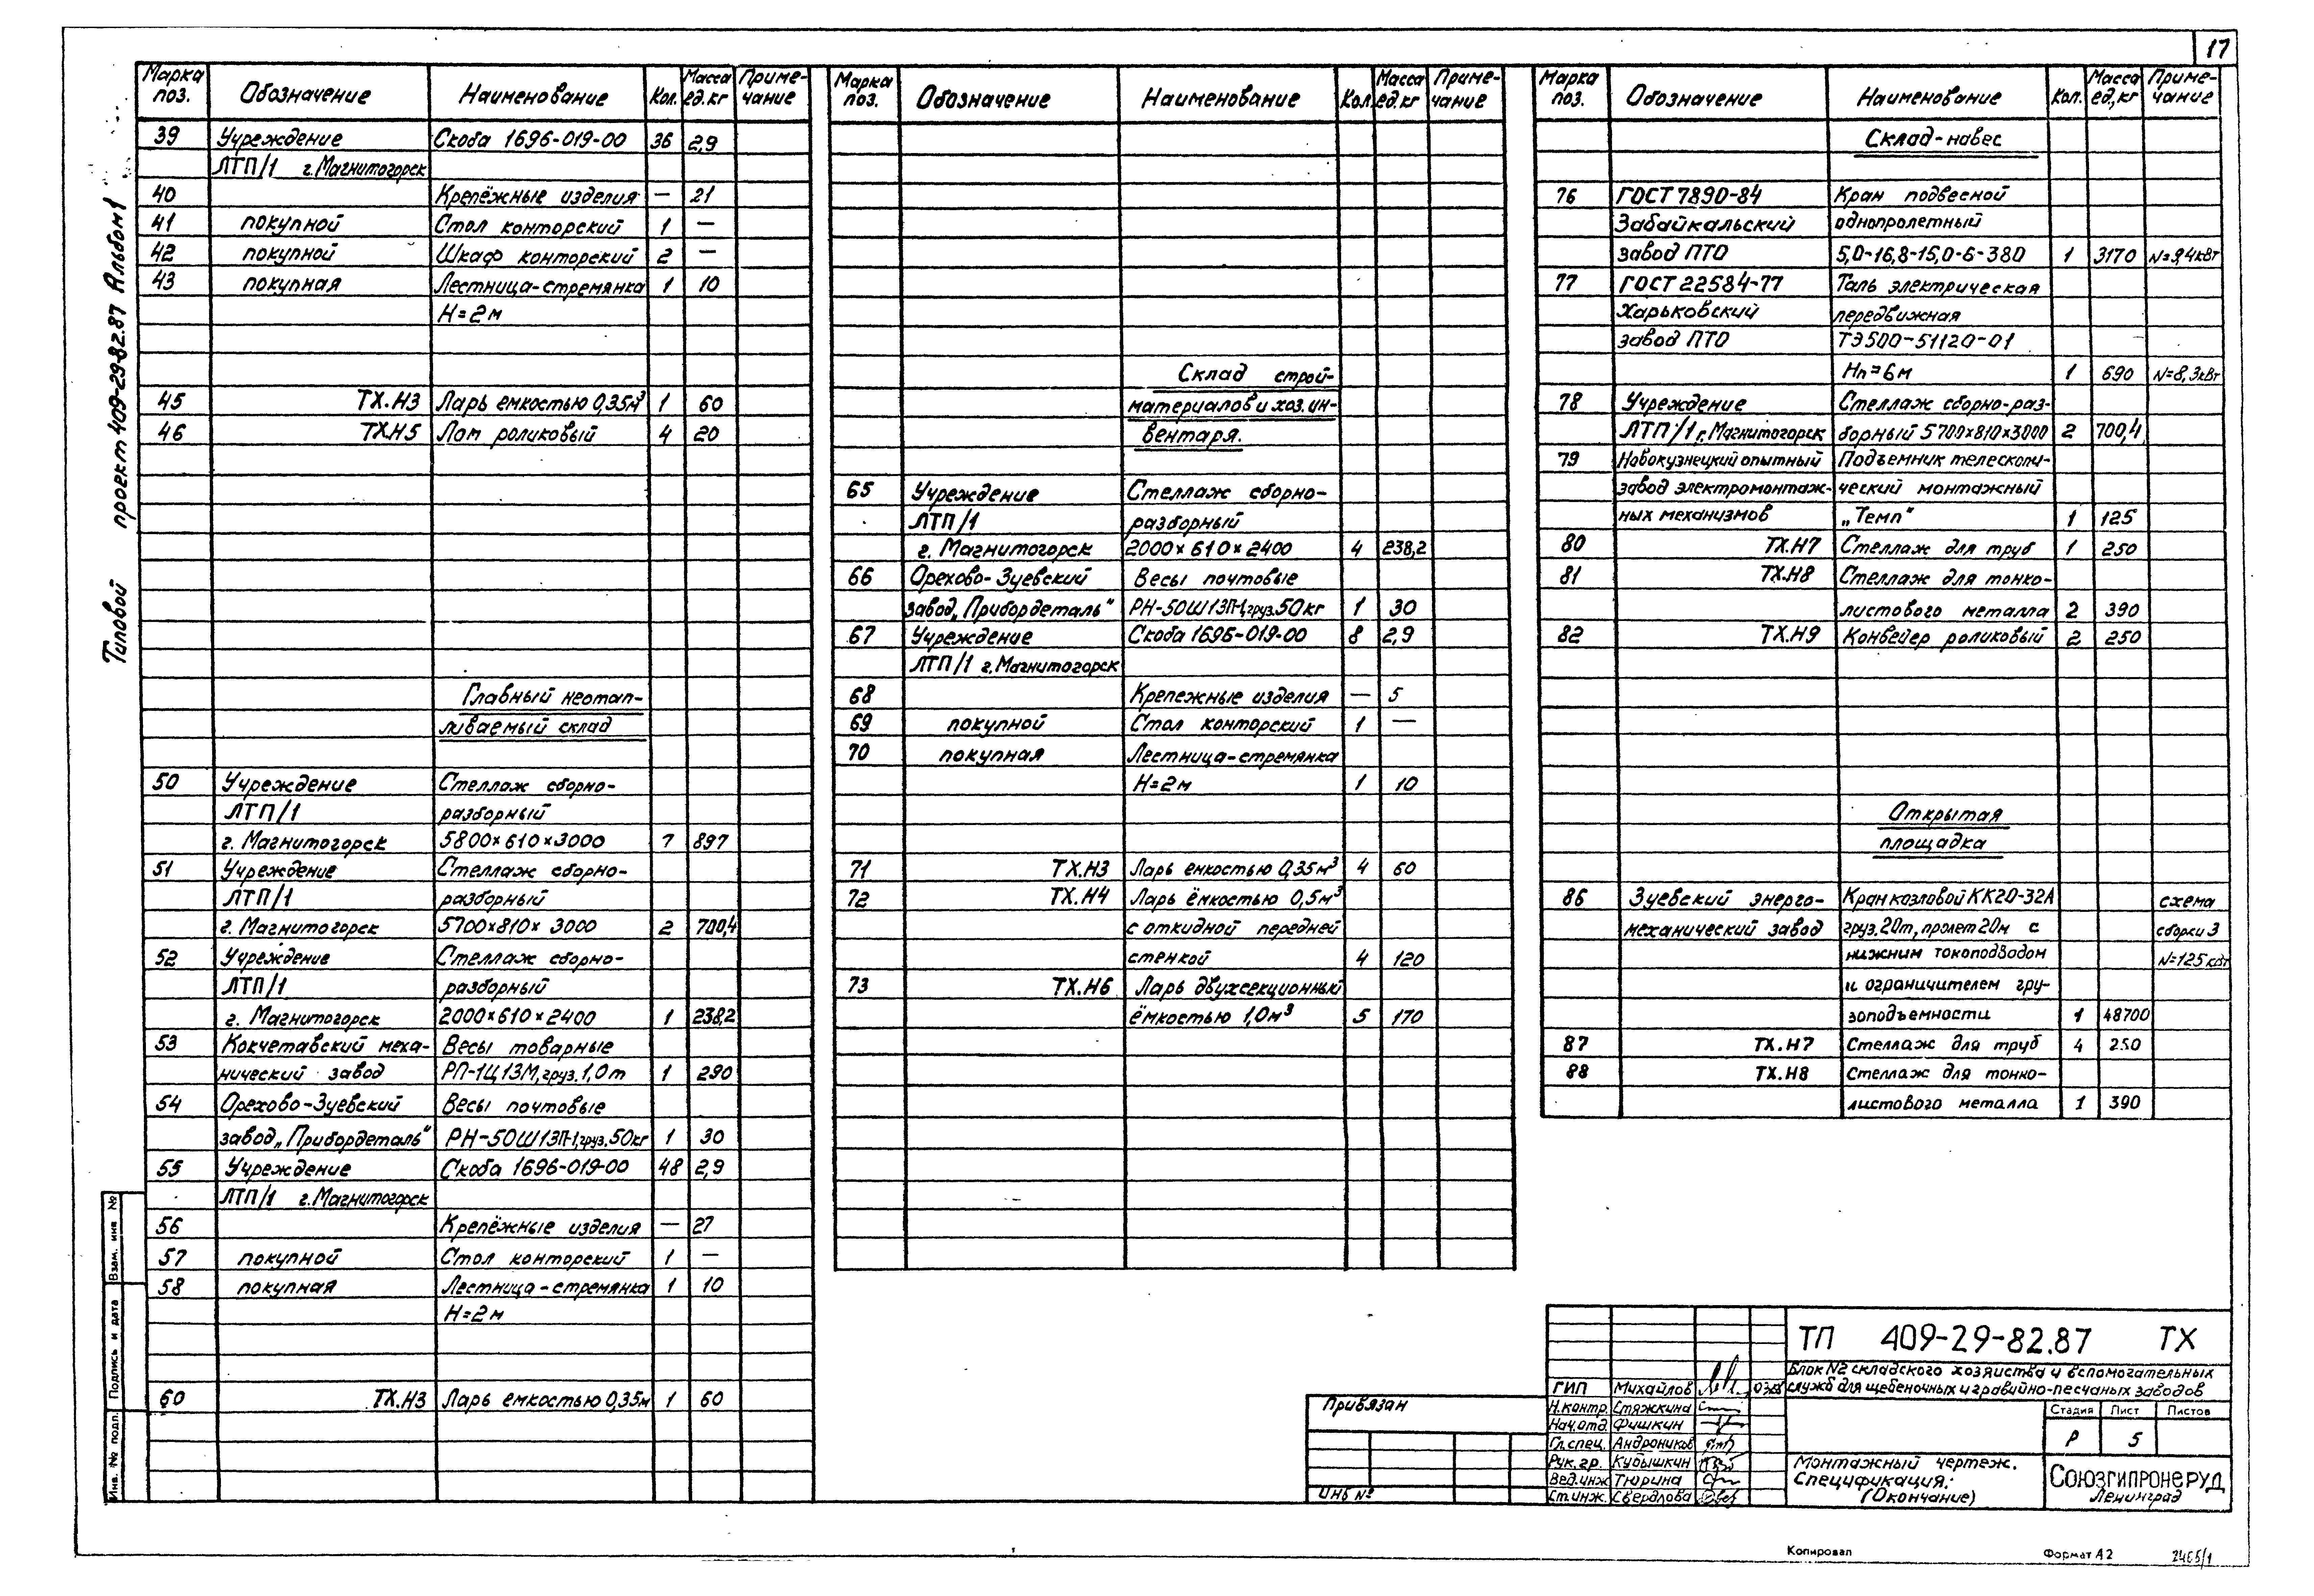 17
Типовой проект 409-29-82.87 Альбом 1
Марка поз. Обозначение Наименование Кол. Масса ед.кг Приме-чание
39 Учреждение Скоба 1696-019-00 36 2,9
ЛТП/1 г.Магнитогорск
40 Крепёжные изделия — 21
41 покупной Стол конторский 1 —
42 покупной Шкаф конторский 2 —
43 покупная Лестница-стремянка 1 10
Н=2м
45 ТХ.Н3 Ларь емкостью 0,35м³ 1 60
46 ТХ.Н5 Лом роликовый 4 20
Главный неотап-
ливаемый склад
50 Учреждение Стеллаж сборно-
ЛТП/1 разборный
г. Магнитогорск 5800×610×3000 7 897
51 Учреждение Стеллаж сборно-
ЛТП/1 разборный
г. Магнитогорск 5700×810×3000 2 700,4
52 Учреждение Стеллаж сборно-
ЛТП/1 разборный
г. Магнитогорск 2000×610×2400 1 238,2
53 Кокчетавский меха- Весы товарные
нический завод РП-1Ц13М, груз. 1,0т 1 290
54 Орехово-Зуевский Весы почтовые
завод „Прибордеталь" РН-50Ш13П-1, груз. 50кг 1 30
55 Учреждение Скоба 1696-019-00 48 2,9
ЛТП/1 г.Магнитогорск
56 Крепёжные изделия — 27
57 покупной Стол конторский 1 —
58 покупная Лестница-стремянка 1 10
Н=2м
60 ТХ.Н3 Ларь емкостью 0,35м 1 60
Марка поз. Обозначение Наименование Кол. Масса ед.кг Приме-чание
Склад строй-
материалов и хоз. ин-
вентаря.
65 Учреждение Стеллаж сборно-
ЛТП/1 разборный
г. Магнитогорск 2000×610×2400 4 238,2
66 Орехово-Зуевский Весы почтовые
завод „Прибордеталь" РН-50Ш13П-1, груз. 50кг 1 30
67 Учреждение Скоба 1696-019-00 8 2,9
ЛТП/1 г.Магнитогорск
68 Крепежные изделия — 5
69 покупной Стол конторский 1 —
70 покупная Лестница-стремянка
Н=2м 1 10
71 ТХ.Н3 Ларь емкостью 0,35м³ 4 60
72 ТХ.Н4 Ларь ёмкостью 0,5м³
с откидной передней
стенкой 4 120
73 ТХ.Н6 Ларь двухсекционный
ёмкостью 1,0м³ 5 170
Марка поз. Обозначение Наименование Кол. Масса ед,кг Приме-чание
Склад-навес
76 ГОСТ 7890-84 Кран подвесной
Забайкальский однопролетный
завод ПТО 5,0-16,8-15,0-6-380 1 3170 N=9,4кВт
77 ГОСТ 22584-77 Таль электрическая
Харьковский передвижная
завод ПТО ТЭ500-51120-01
Нп=6м 1 690 N=8,3кВт
78 Учреждение Стеллаж сборно-раз-
ЛТП/1 г.Магнитогорск борный 5700×810×3000 2 700,4
79 Новокузнецкий опытный Подъемник телескопи-
завод электромонтаж- ческий монтажный
ных механизмов „Темп" 1 125
80 ТХ.Н7 Стеллаж для труб 1 250
81 ТХ.Н8 Стеллаж для тонко-
листового металла 2 390
82 ТХ.Н9 Конвейер роликовый 2 250
Открытая
площадка
86 Зуевский энерго- Кран козловой КК20-32А схема
механический завод груз. 20т, пролет 20м с сборки 3
нижним токоподводом N=125квт
и ограничителем гру-
зоподъемности 1 48700
87 ТХ.Н7 Стеллаж для труб 4 250
88 ТХ.Н8 Стеллаж для тонко-
листового металла 1 390
Взам. инв №
Подпись и дата
Инв. № подл.
Привязан
Инв №
ТП 409-29-82.87 ТХ
Блок №2 складского хозяйства и вспомогательных
служб для щебеночных и гравийно-песчаных заводов
ГИП Михайлов
Н.контр. Стяжкина
Нач.отд. Фишкин
Гл.спец. Андроников
Рук.гр. Кубышкин
Вед.инж Тюрина
Ст.инж. Свердлова
Стадия Лист Листов
Р 5
Монтажный чертеж.
Спецификация:
(Окончание)
Союзгипронеруд
Ленинград
Копировал Формат А2